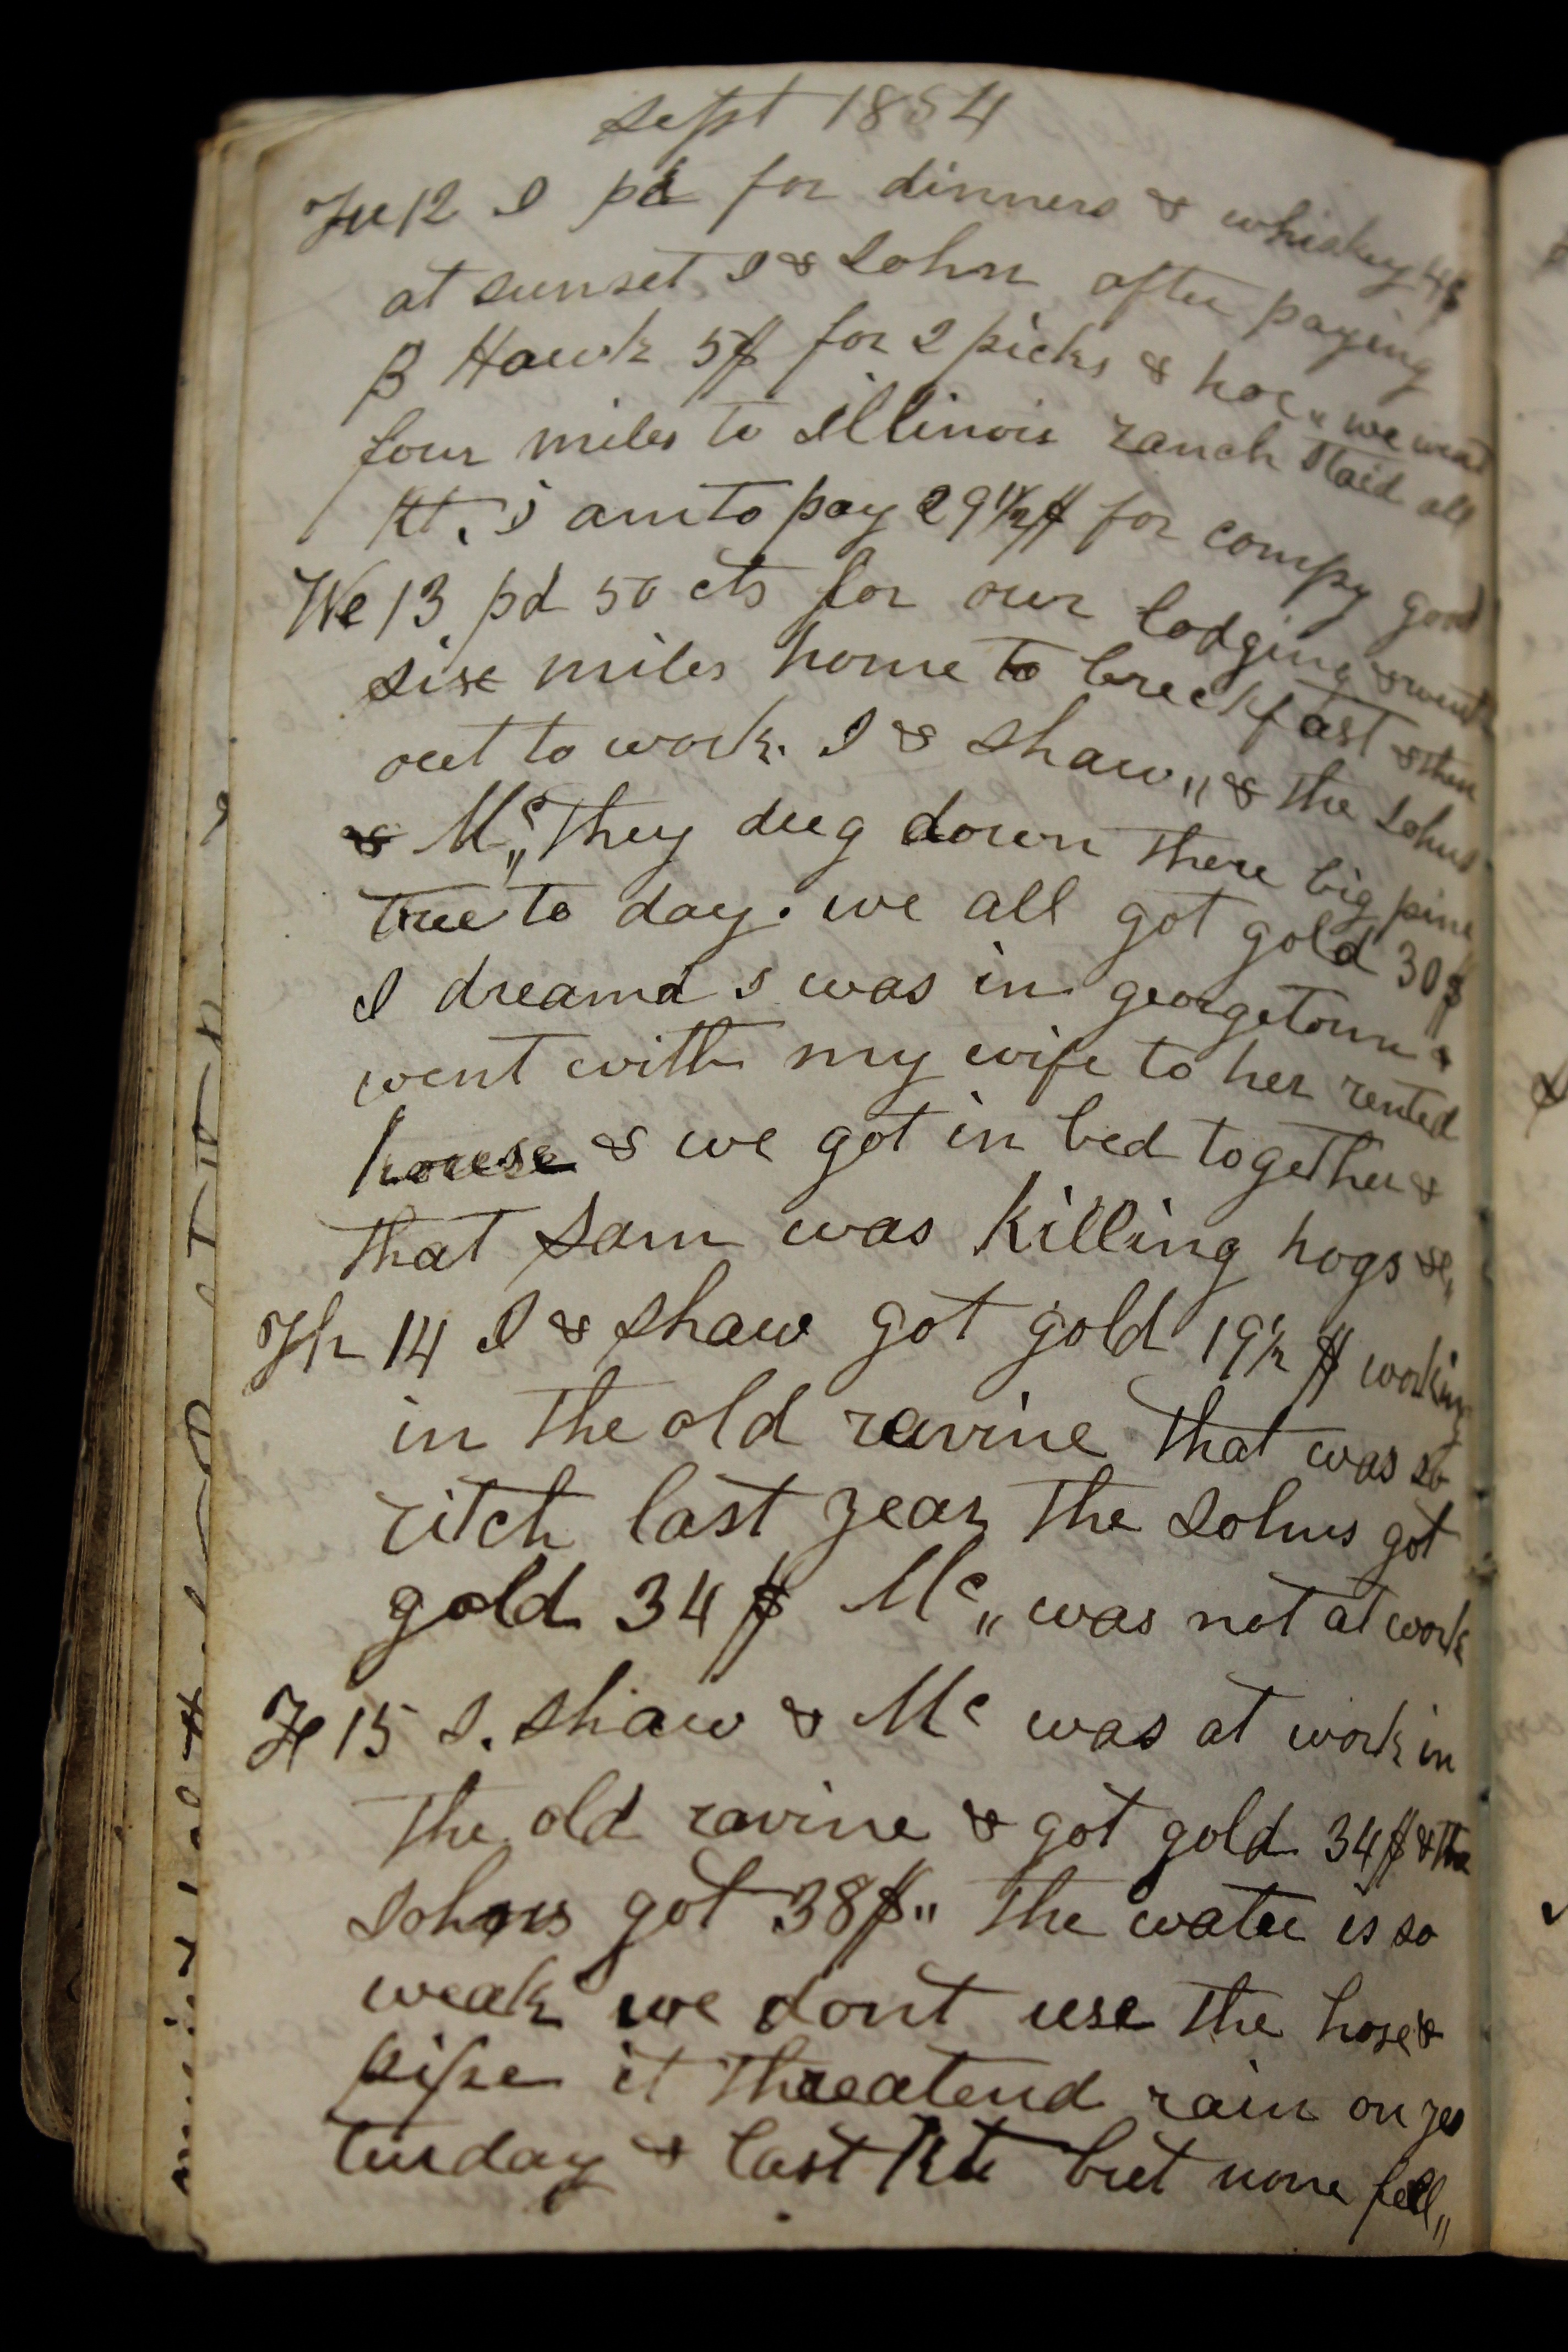 Sept 1854
Tu 12 I pd for dinners & whiskey 4$
at sunset I & John after paying
B Hawk 5$ for 2 picks & hoe " we went
four miles to Illinois ranch staid all
nt. I am to pay 29 1/2 $ for compy good
We 13. pd 50 cts for our lodging & went
six miles home to breckfast & then
out to work. I & Shaw,, & the Johns
& Mc,, they dug down there big pine
tree to day. we all got gold 30$
I dreamd I was in georgetown &
went with my wife to her rented
house & we got in bed together &
that Sam was killing hogs &c,,
Th 14 I & Shaw got gold 19 1/2 $ working
in the old ravine that was so
ritch last year the Johns got
gold 34 $ Mc,, was not at work
Fr 15 I. Shaw & Mc was at work in
the old ravine & got gold 34$ & the
Johns got 38$ " the water is so
weak we dont use the hose &
pipe it threatend rain on yes
turday & last nt but none fell,,